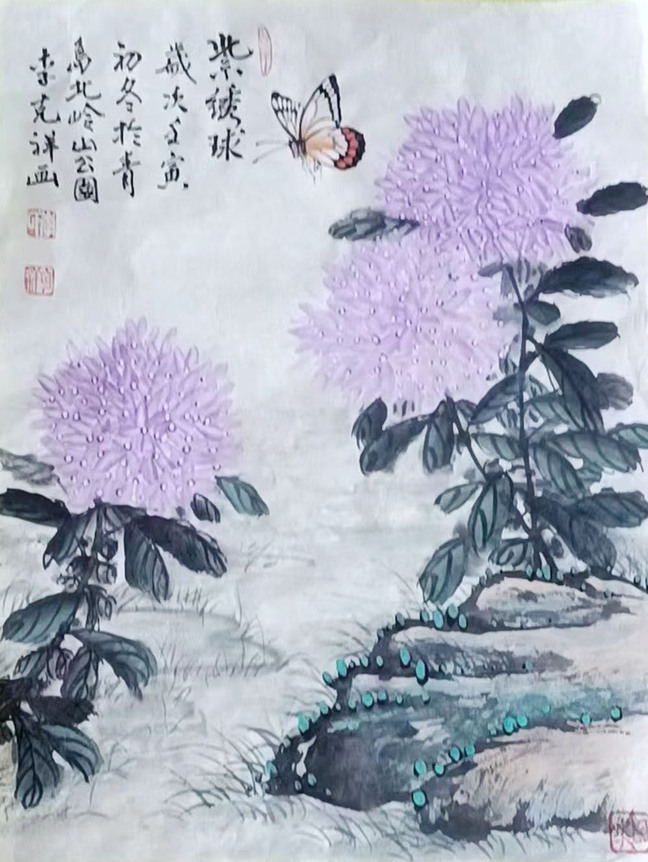 紫绣球
岁次壬寅
初冬於青
岛北岭山公園
李克祥画